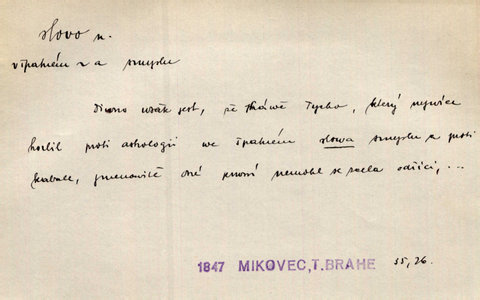 slovo n.
v špatném s-a smyslu
Divno však jest, že skáwě Tycho, který nejwíce
horlil proti astrologii we špatném slowa smyslu a proti
kabale, jmenowitě oné prwní nemohl se zcela odříci, ...
1847 MIKOVEC, T. BRAHE 55, 26.